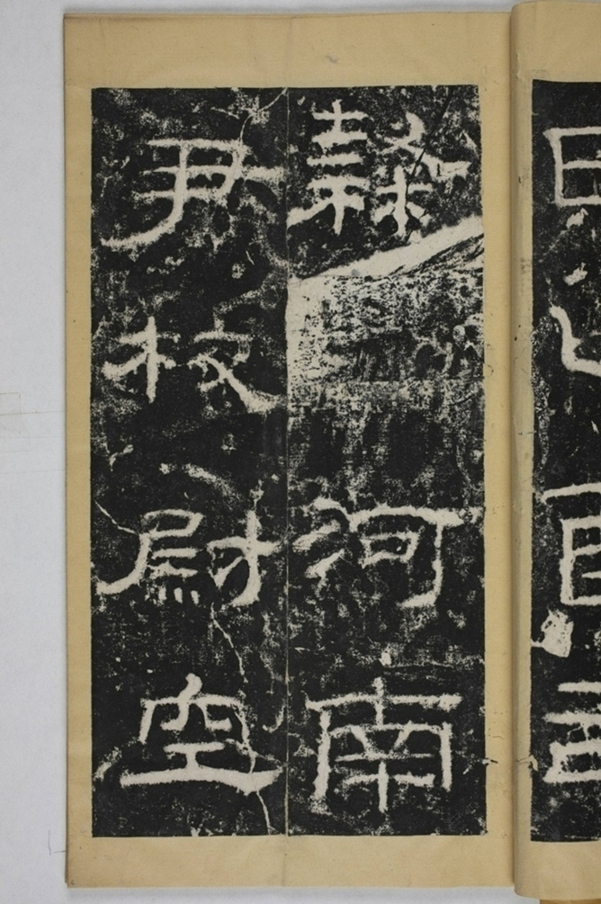 隸河南
尹校尉空